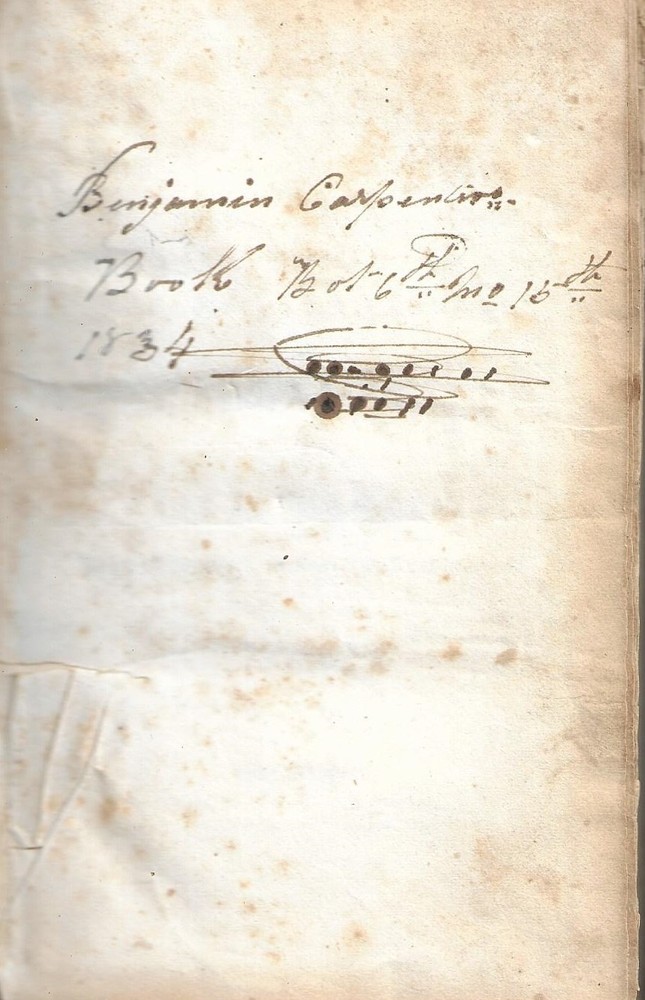 Benjamin Carpenters
Book Bot 6th mo 15th
1834